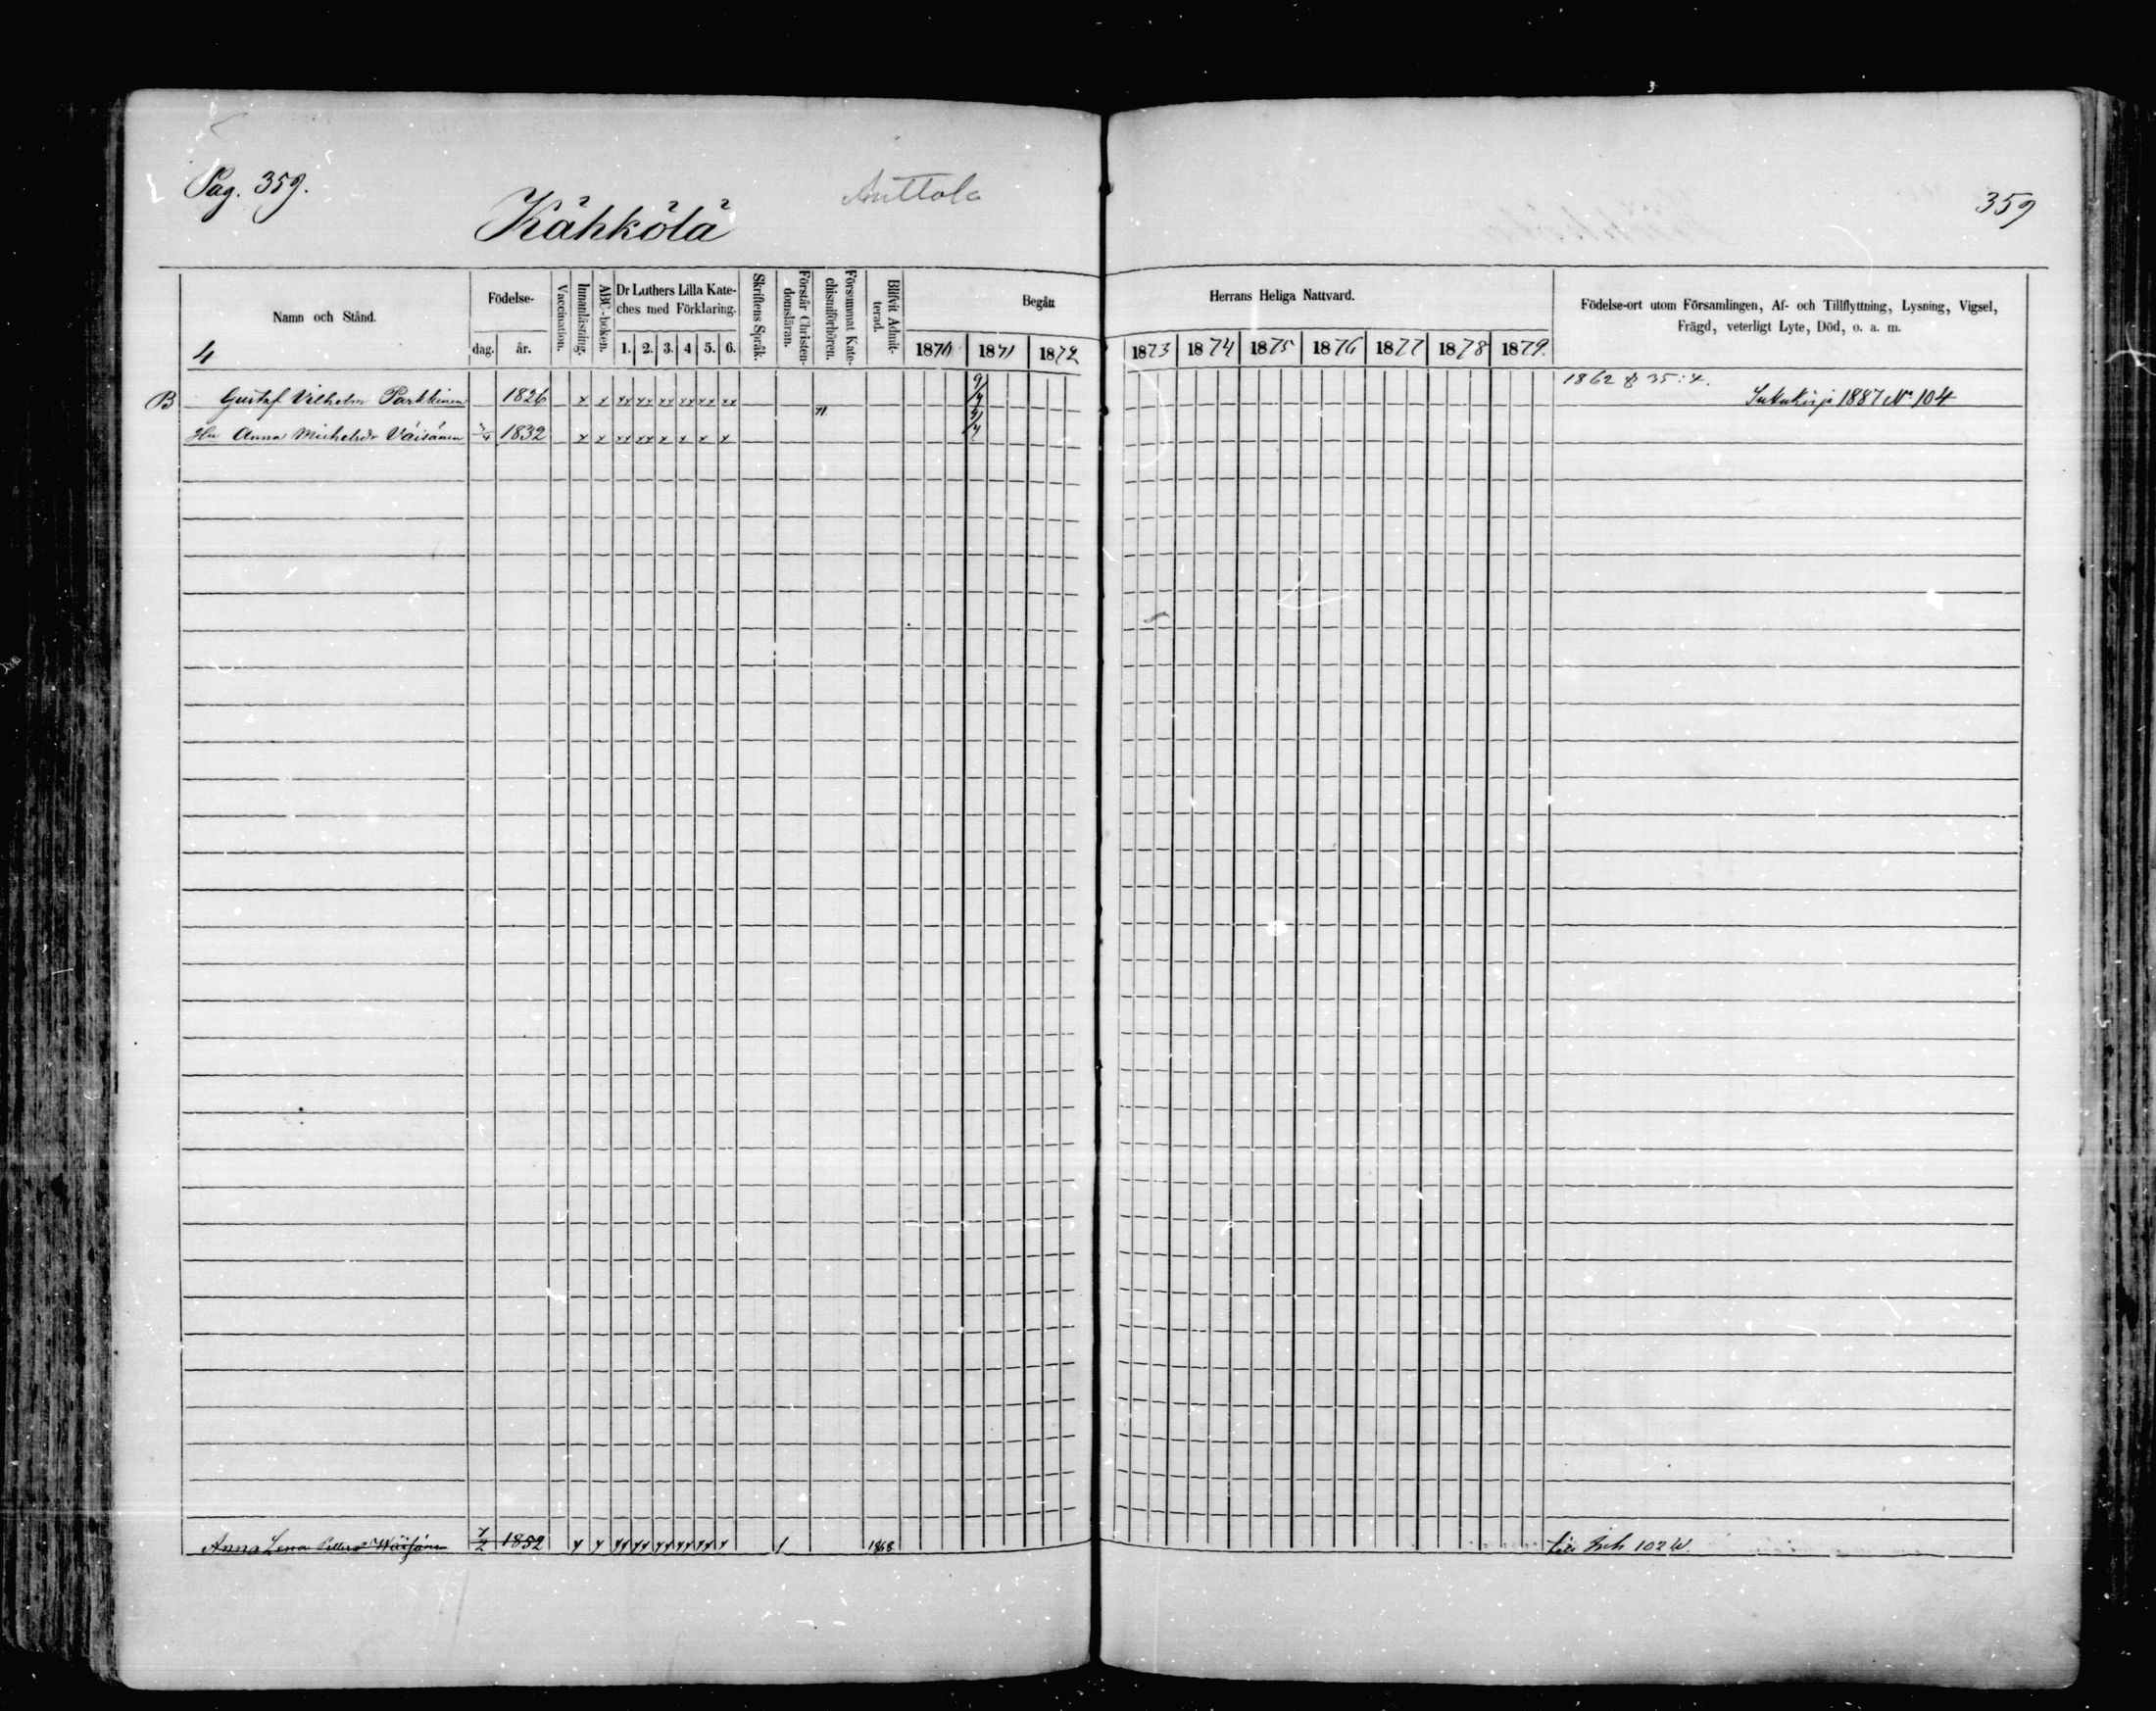 Pag. 359.
Anttola
359
Kähkölä
Namn och Stånd.
Födelse-
dag.
år.
Vaccination.
Innanläsning.
ABC-boken.
Dr Luthers Lilla Kate-
ches med Förklaring.
1. 2. 3. 4 5. 6.
Skriftens Språk.
Förstår Christen-
domsläran.
Försummat Kate-
chismiförhören.
Blifvit Admit-
terad.
Begått
Herrans Heliga Nattvard.
1870 1871 1872 1873 1874 1875 1876 1877 1878 1879.
Födelse-ort utom Församlingen, Af- och Tillflyttning, Lysning, Vigsel,
Frägd, veterligt Lyte, Död, o. a. m.
4
B Gustaf Vilhelm Parkkinen 1826 x x xx xx xx xx xx xx 9/7 1862 § 35:4. 1887 No 104
Hu Anna Michelsdr Väisänen 1832 x x xx xx x x x x 71 9/7
Anna Lena Wäisänen 7/2 1852 x x xx xx xx xx xx x 1 1868 102 W.